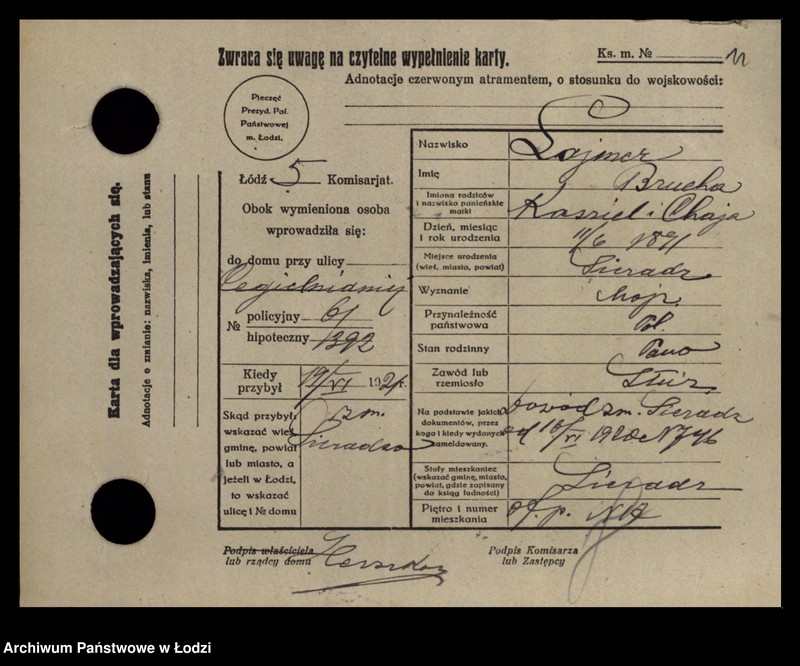 Zwraca się uwagę na czytelne wypełnienie karty.
Ks. m. №
11
Adnotacje czerwonym atramentem, o stosunku do wojskowości:
Pieczęć
Prezyd. Pol.
Państwowej
m. Łodzi.
Łódź 5 Komisarjat.
Obok wymieniona osoba
wprowadziła się:
do domu przy ulicy
Cegielnianej
№ policyjny 61
hipoteczny 1392
Kiedy przybył 19/VI 1921 r.
Skąd przybył:
wskazać wieś,
gminę, powiat
lub miasto, a
jeżeli w Łodzi,
to wskazać
ulicę i № domu
z m.
Sieradza
Nazwisko Lajmer
Imię Brucha
Imiona rodziców
i nazwisko panieńskie
matki
Kasriel i Chaja
Dzień, miesiąc
i rok urodzenia
11/6 1891
Miejsce urodzenia
(wieś, miasto, powiat)
Sieradz
Wyznanie mojż.
Przynależność
państwowa
Pol.
Stan rodzinny Panna
Zawód lub
rzemiosło
Służ.
Na podstawie jakich
dokumentów, przez
kogo i kiedy wydanych
zameldowany.
Dowód zm. Sieradz
Stały mieszkaniec
(wskazać gminę, miasto,
powiat, gdzie zapisany
do ksiąg ludności)
Sieradz
Piętro i numer
mieszkania
Podpis właściciela
lub rządcy domu
Podpis Komisarza
lub Zastępcy
Karta dla wprowadzających się.
Adnotacje o zmianie: nazwiska, imienia, lub stanu
Archiwum Państwowe w Łodzi